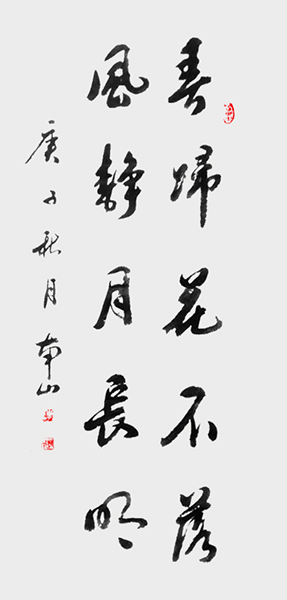 春歸花不落
風静月長明
庚子秋月南山